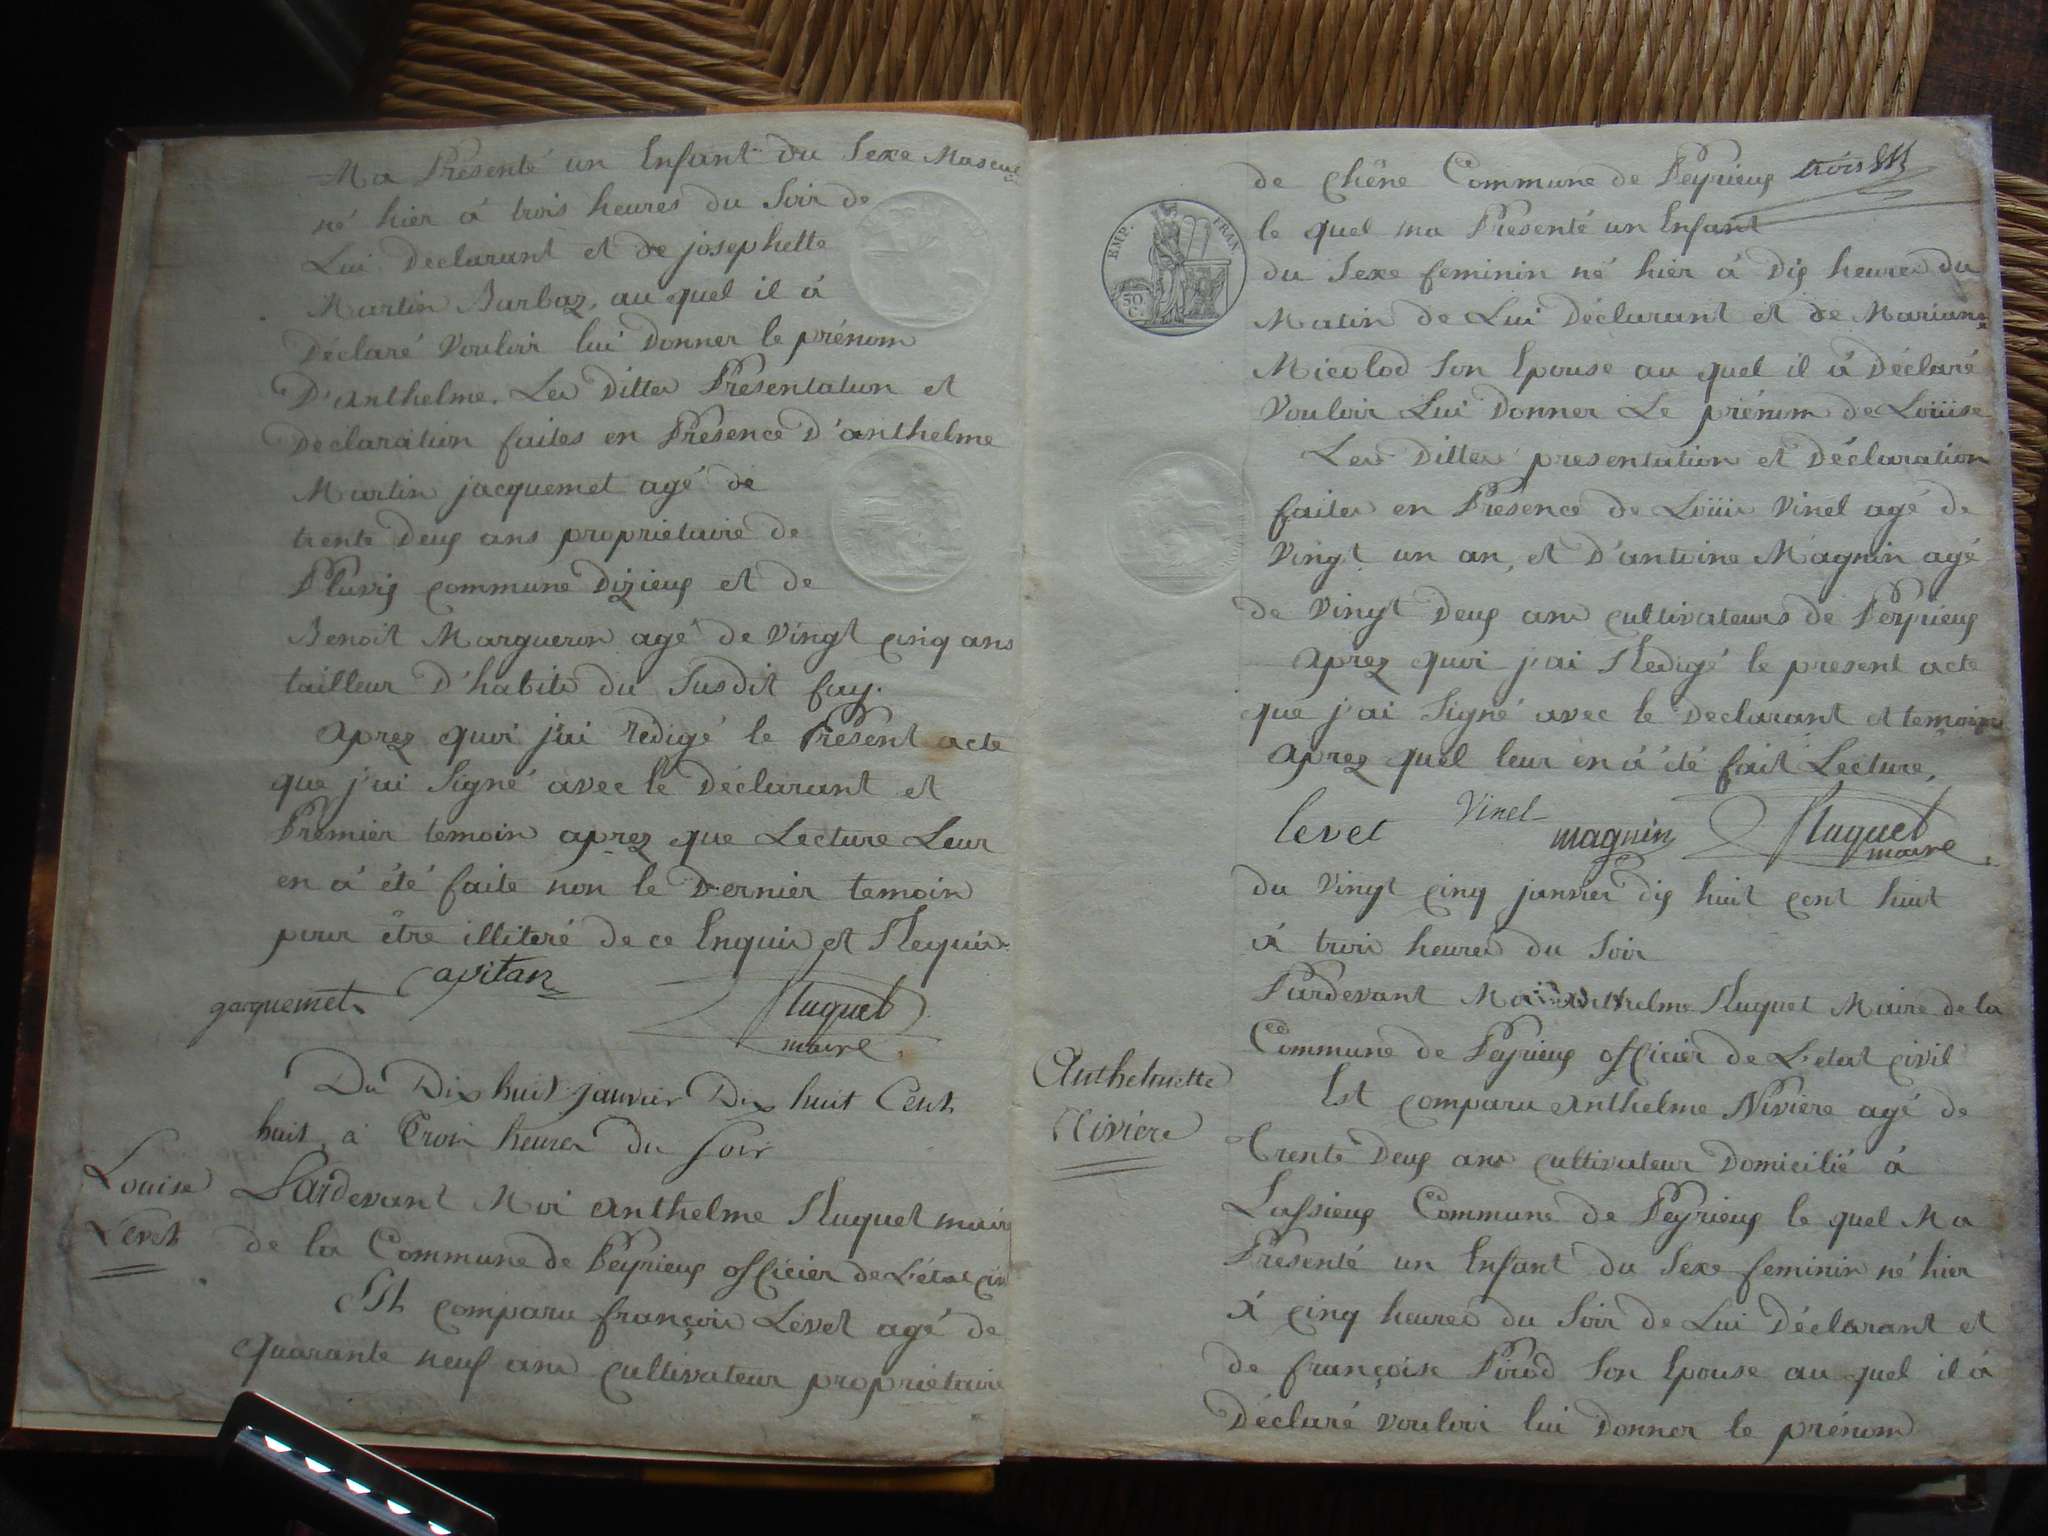 Ma Présenté un Enfant du Sexe Mascul
né hier à trois heures du Soir de
Lui Declarant et de josephette
Martin Barbaz, au quel il à
Déclaré Vouloir lui Donner le prénom
D'Anthelme. Les Dittes Présentation et
Déclaration faites en Présence D'anthelme
Martin jacquemet agé de
trente Deux ans propriétaire de
Pluvis commune Dizieux et de
Benoit Margueron agé de Vingt cinq ans
tailleur D'habits du Susdit fay.
Aprez quoi j'ai redigé le Présent acte
que j'ai Signé avec le Déclarant et
Premier temoin aprez que Lecture Leur
en à été faite non le Dernier temoin
pour être illiteré de ce Enquis et Requis
jacquemet Capitan Ruguet
maire
Du Dix huit janvier Dix huit Cent
huit à Trois heures du Soir
Louise
Levet
Pardevant Moi Anthelme Ruguet maire
de la Commune de Peyrieux officier de L'état civ
Est comparu françois Levet agé de
Quarante neuf ans cultivateur propriétaire
trois
de chêne Commune de Peyrieux
EMP. FRAN
50
C.
le quel ma Présenté un Enfant
du Sexe feminin né hier à Dix heures du
Matin de Lui Déclarant et de Mariane
Micolod Son Epouse au quel il à Déclaré
Vouloir Lui Donner Le prénom de Loüise
Les Dittes presentation et Déclaration
faites en Présence de Loüis Vinel agé de
Vingt un an, et D'antoine Magnin agé
de Vingt Deux ans cultivateurs de Peyrieux
Aprez quoi j'ai Redigé le present acte
que j'ai Signé avec le Declarant et temoins
Aprez quel leur en à été fait Lecture,
levet Vinel magnin Ruguet
maire
du Vingt cinq janvier dix huit cent huit
à trois heures du Soir
Pardevant Moi Anthelme Ruguet Maire de la
Commune de Peyrieux officier de L'etat civil
Anthelmette
Riviére
Est comparu Anthelme Riviere agé de
Trente Deux ans cultivateur Domicilié à
Lassieux Commune de Peyrieux le quel Ma
Présenté un Enfant du Sexe feminin né hier
à cinq heures du Soir de Lui Déclarant et
de françoise Pirod Son Epouse au quel il à
Déclaré vouloir lui Donner le prénom